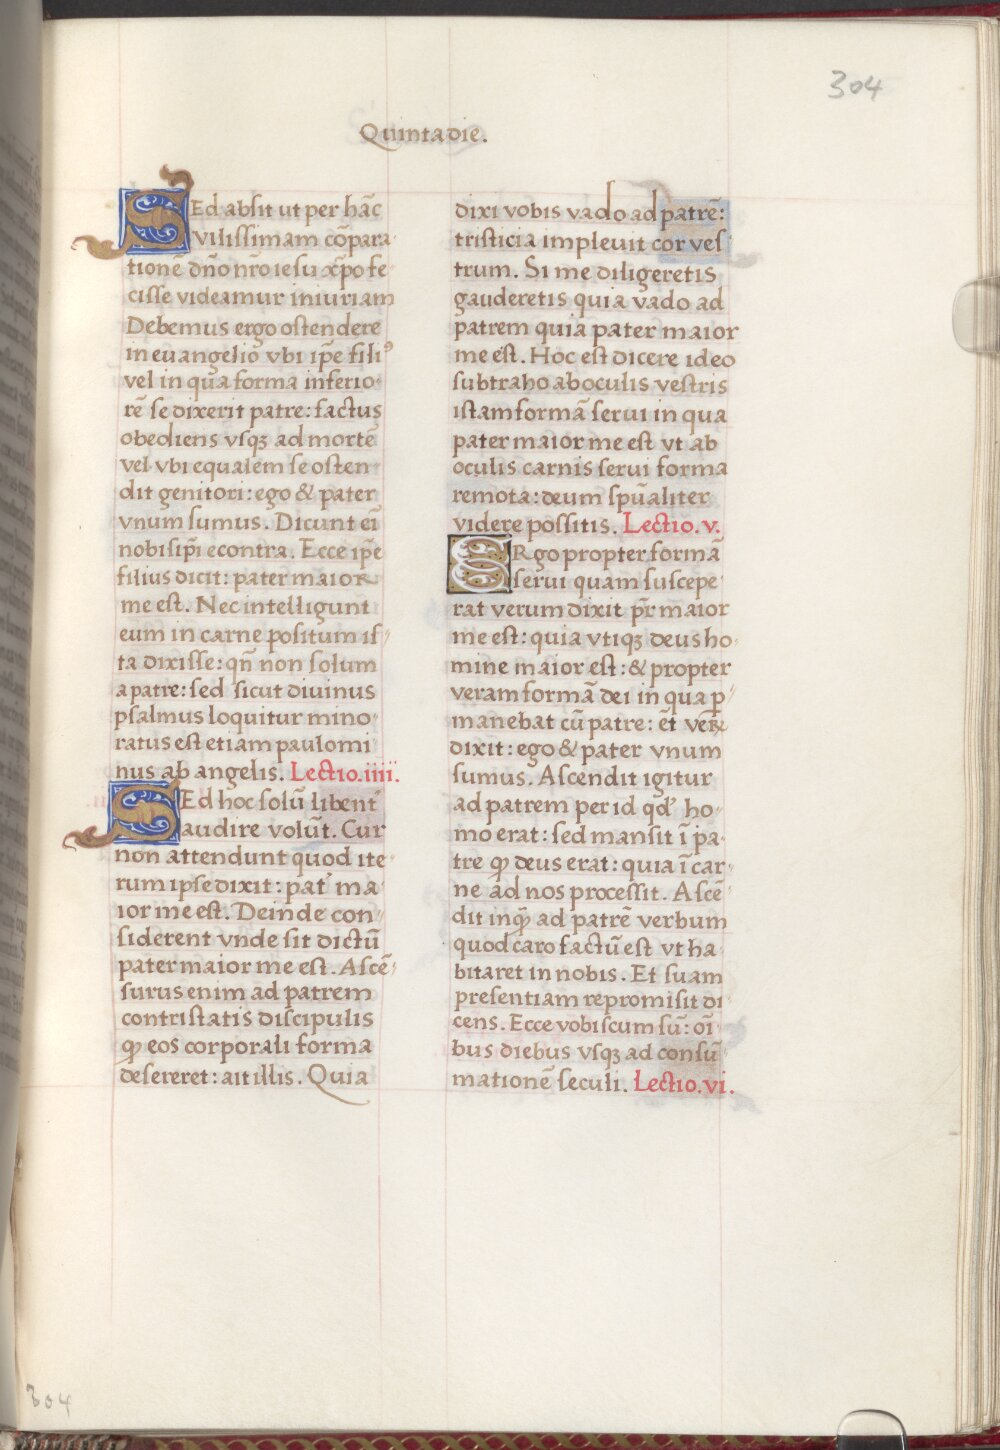 304
Quinta die.
Sed absit ut per hāc
vilissimam cōpara
tionē dn̄o nr̄o iesu xp̄o fe
cisse videamur iniuriam
Debemus ergo ostendere
in euangelio vbi ip̄e filiꝰ
vel in qua forma inferio
rē se dixerit patre: factus
obediens vsqꝫ ad mortē
vel vbi equalem se osten
dit genitori: ego & pater
vnum sumus. Dicunt ei
nobis ip̄i econtra. Ecce ip̄e
filius dicit: pater maior
me est. Nec intelligunt
eum in carne positum is
ta dixisse: qn̄ non solum
a patre: sed sicut diuinus
psalmus loquitur mino
ratus est etiam paulomi
nus ab angelis. Lectio. iiii.
Sed hoc solū libent᷑
audire volūt. Cur
non attendunt quod ite
rum ipse dixit: pat᷑ ma
ior me est. Deinde con
siderent vnde sit dictū
pater maior me est. Ascē
surus enim ad patrem
contristatis discipulis
ꝙ eos corporali forma
desereret: ait illis. Quia
dixi vobis vado ad patrē:
tristicia impleuit cor ves
trum. Si me diligeretis
gauderetis quia vado ad
patrem quia pater maior
me est. Hoc est dicere ideo
subtraho ab oculis vestris
istam formā serui in qua
pater maior me est vt ab
oculis carnis serui forma
remota: deum spūaliter
videre possitis. Lectio. v.
Ergo propter formā
serui quam suscepe
rat verum dixit pr̄ maior
me est: quia vtiqꝫ deus ho
mine maior est: & propter
veram formā dei in qua p
manebat cū patre: et̄ veꝝ
dixit: ego & pater vnum
sumus. Ascendit igitur
ad patrem per id qd᷑ ho
mo erat: sed mansit ī pa
tre ꝙ deus erat: quia ī car
ne ad nos processit. Ascē
dit inꝙ ad patrē verbum
quod caro factū est vt ha
bitaret in nobis. Et suam
presentiam repromisit di
cens. Ecce vobiscum sū: oī
bus diebus vsqꝫ ad consū
mationē seculi. Lectio. vi.
304